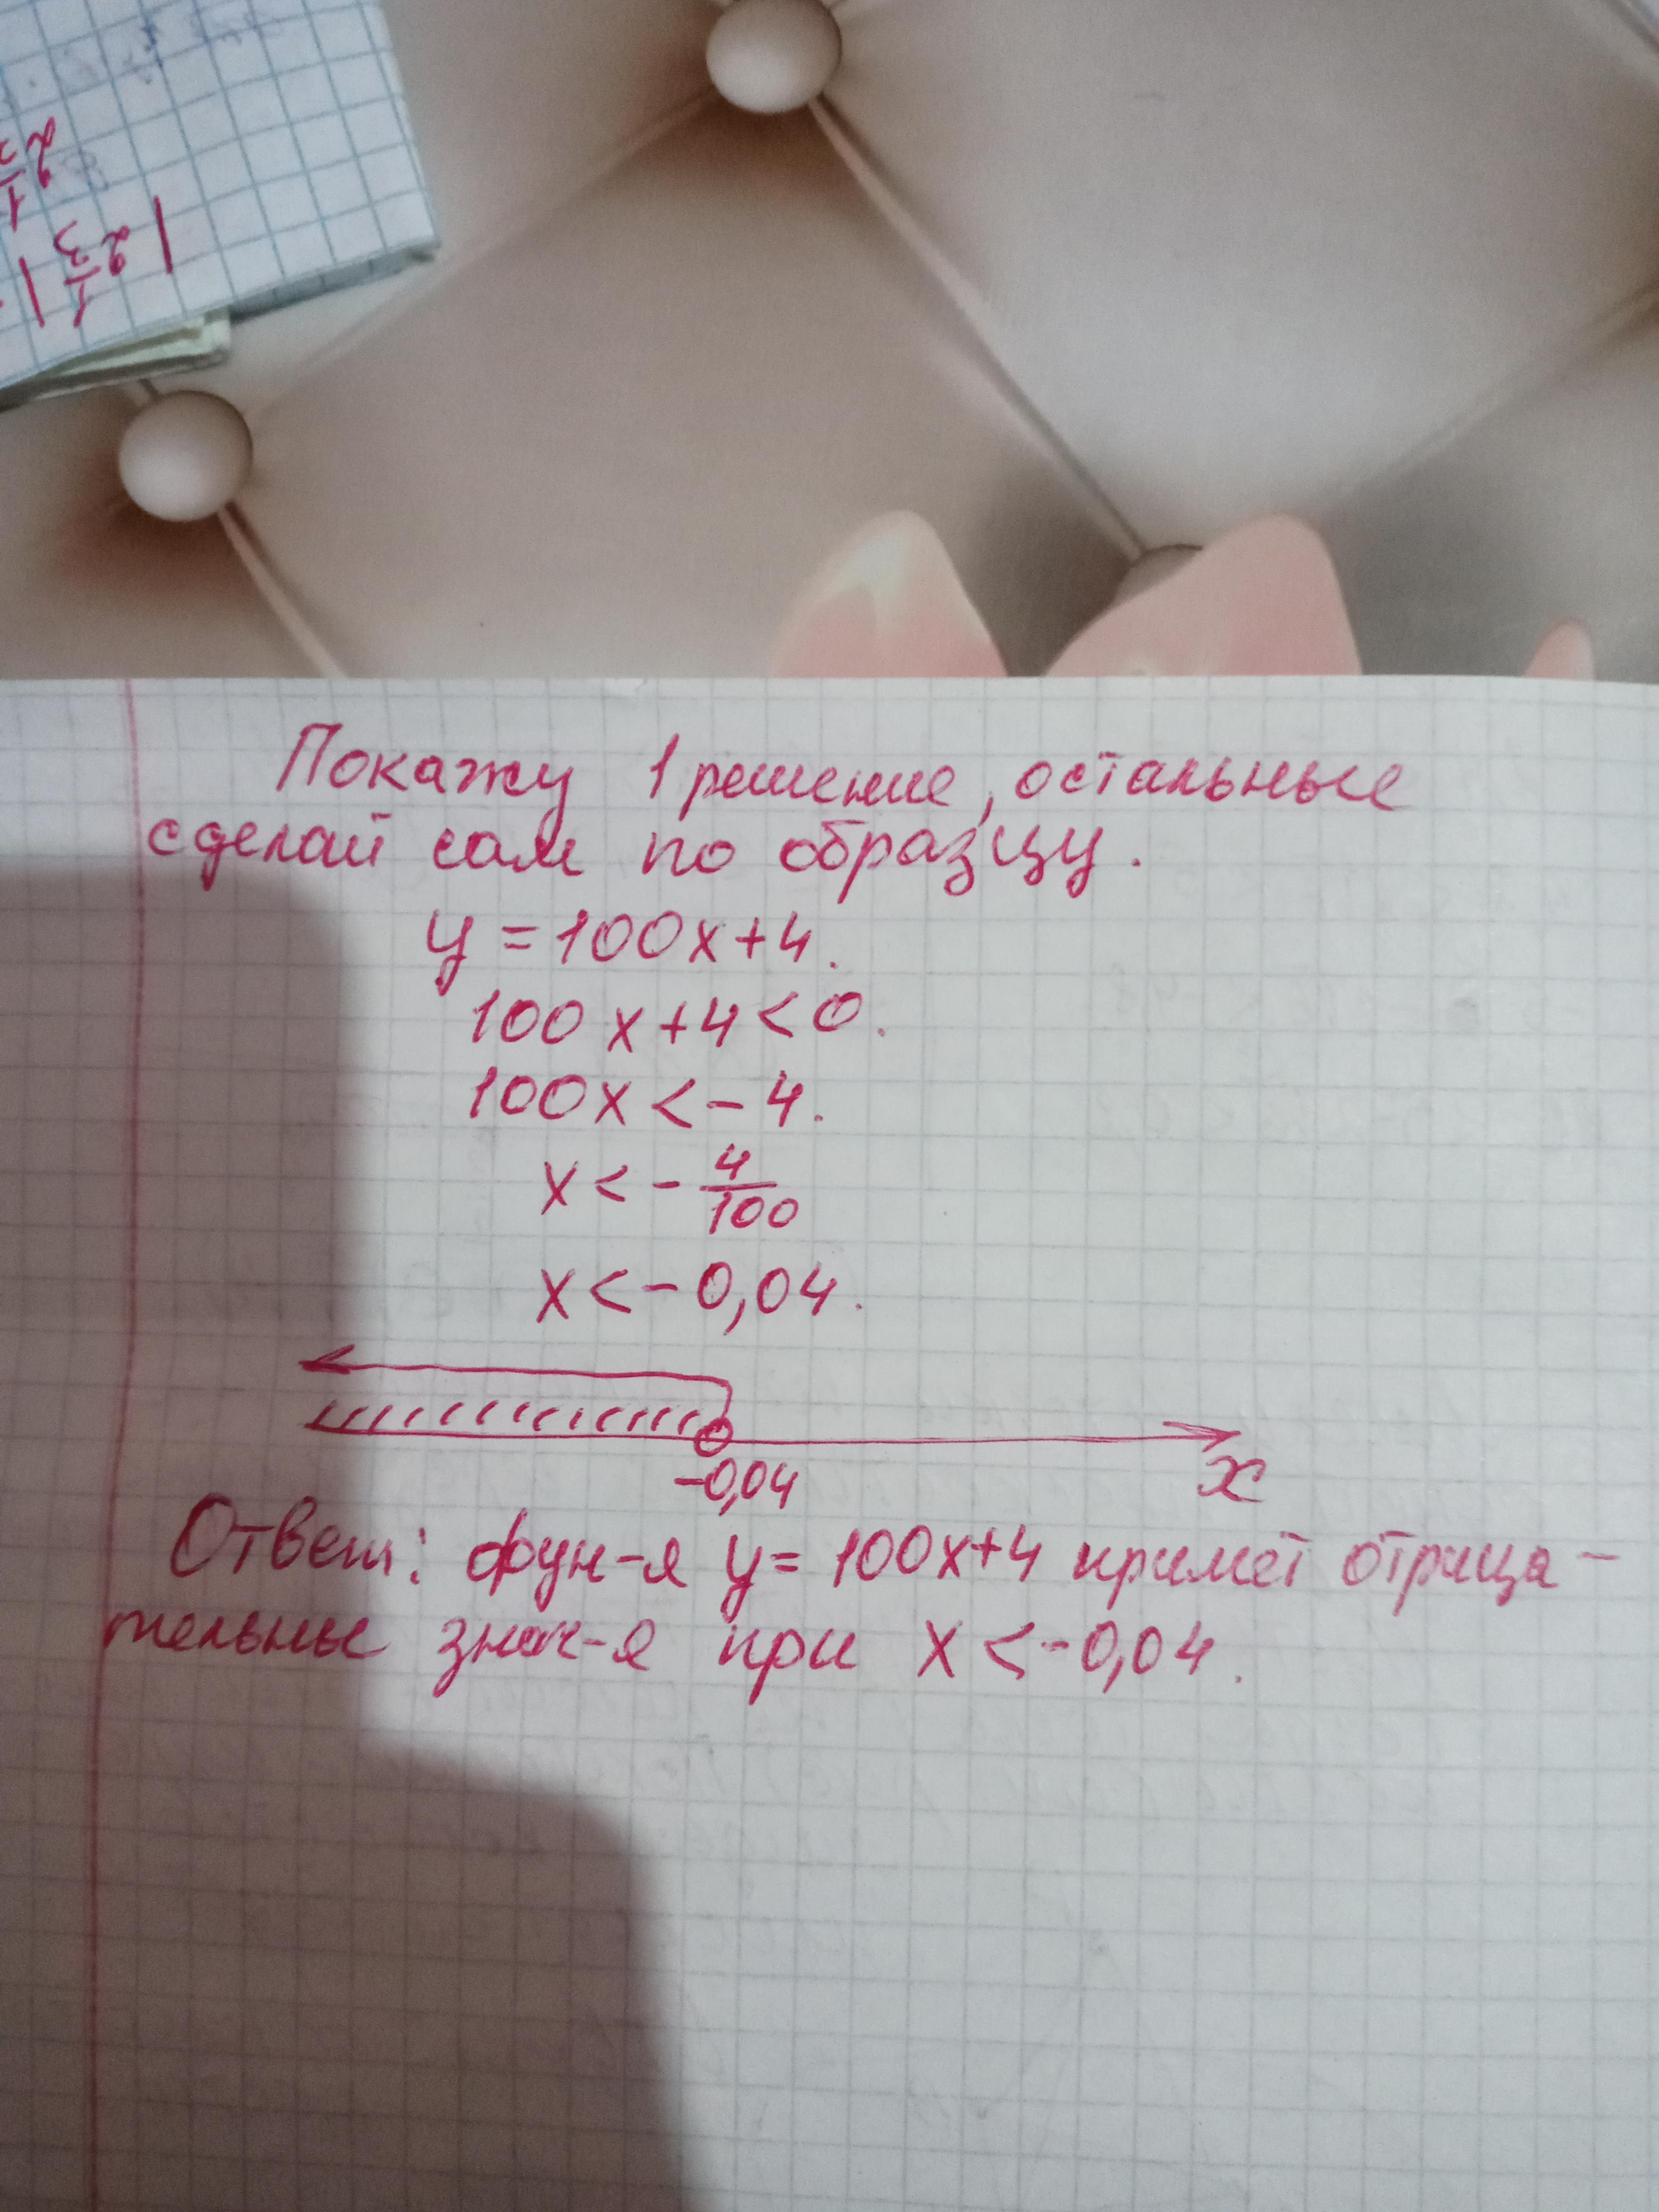 2 1/3
| 2 1/3 |
Покажу 1 решение, остальные
сделай сам по образцу.
y = 100x + 4.
100x + 4 < 0.
100x < - 4.
x < - 4/100
x < - 0,04.
-0,04
x
Ответ: фун-я y = 100x+4 примет отрица-
тельные знач-я при x < -0,04.